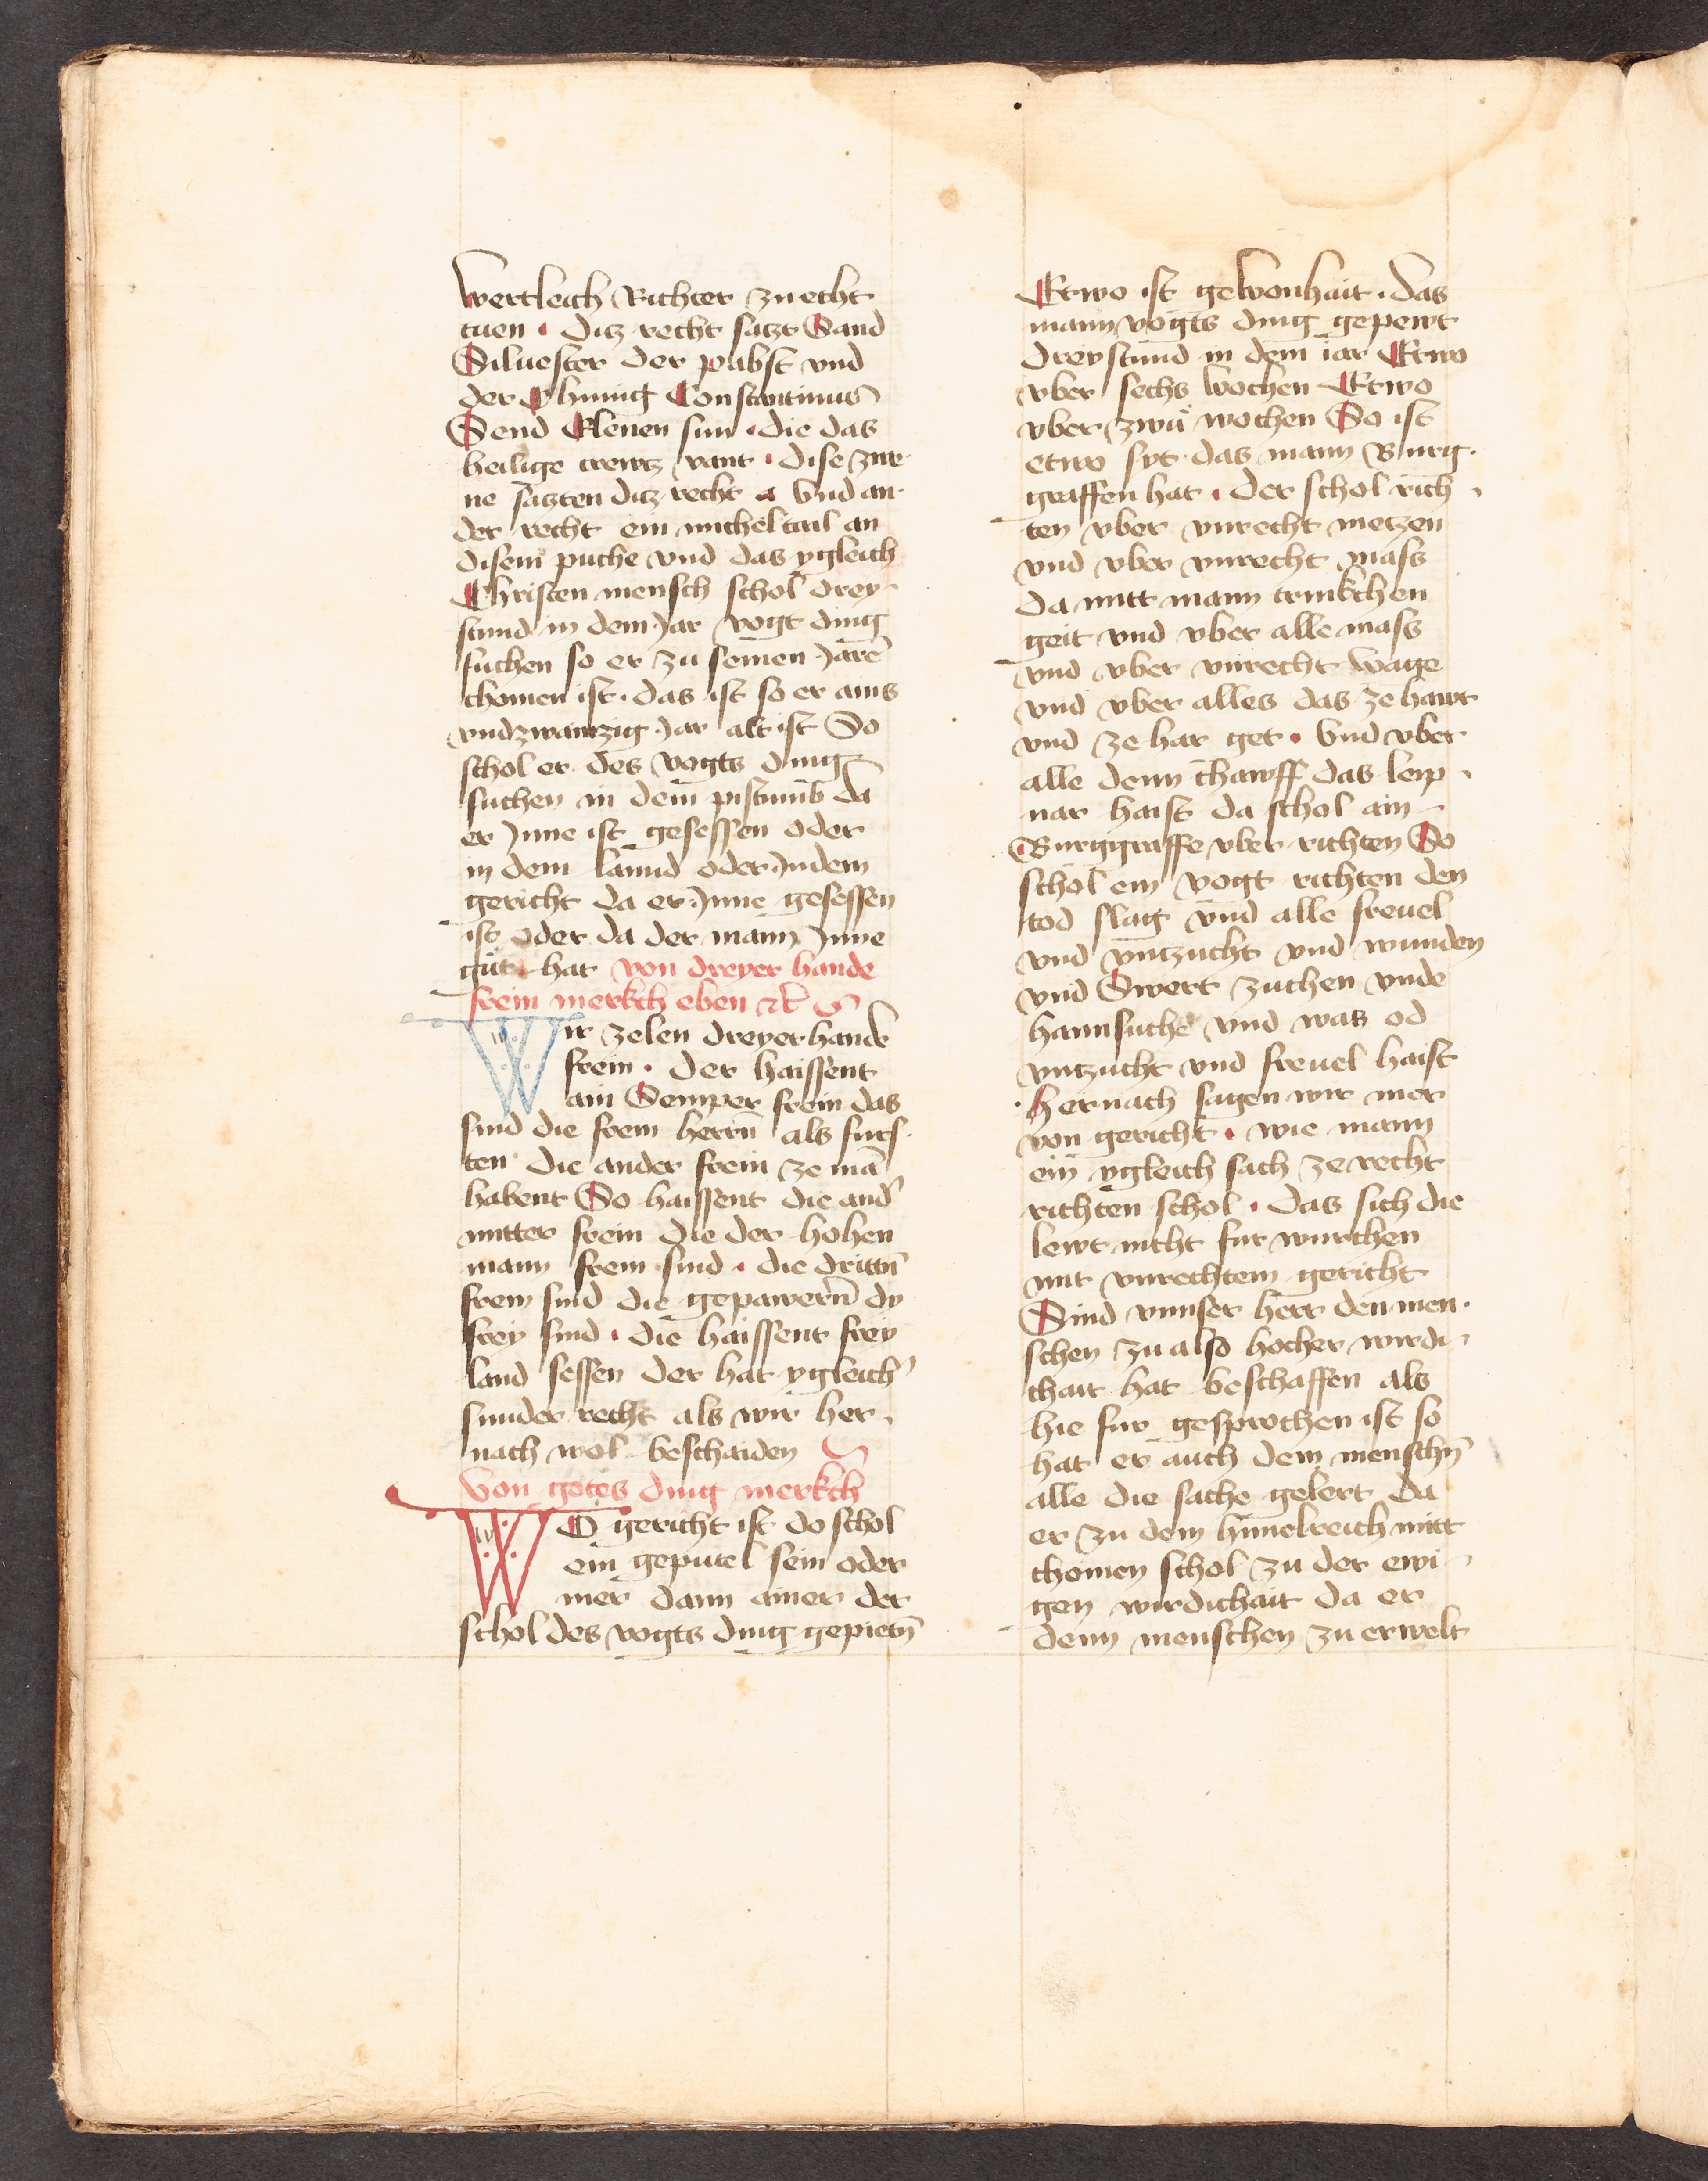 wertleich Richter zu echt
tuen · ditz recht satzt Sand
Siluester der pabst vnd
der Chunig Constantinus
Send Elenen sun · die das
heilige crewtz vant · dise zwe
ne satzten ditz recht · Vnd an
der recht ein michel tail an
disem puche vnd das ygleich
Christen mensch schol drey
stund in dem Jar vogt ding
suchen so er zu seinen Jarē
chomen ist · das ist so er ains
vndzwantzig Jar alt ist So
schol er des vogts ding
suchen in dem pistumb da
er Jnne ist gesessen oder
in dem lannd oder Jndem
gericht da er Jnne gesessen
ist oder da der mann Jnne
gut hat von dreyer hande
frein merkch eben etc
Wir zelen dreyer hande
frein · der haissent
ain Semper frein das
sind die frein herrn als furs
ten die ander frein ze mā
habent So haissent die and'
mitter frein die der hohen
mann frein sind · die drittn
frein sind die gepawern dy
frey sind · die haissent frey
land sessen der hat ygleich'
sunder recht als wir her
nach wol beschaiden
Von gotes ding merkch
WO gericht ist do schol
ein geputel sein oder
mer dann ainer der
schol des vogts ding gepietn
Etwo ist gewonhait · das
mann vogts ding gepewt
dreystund in dem iar Etwo
vber sechs wochen Etwo
vber zwu wochen So ist
etwo syt das mann Burg
graffen hat · der schol rich
ten vber vnrecht metzen
vnd vber vnrecht mass
da mitt mann trinkchen
geit vnd vber alle mass
vnd vber vnrecht wage
vnd vber alles das ze hawt
vnd ze har get · Vnd vber
alle denn chawff das leip
nar haist da schol ain
Burggraffe vber richten So
schol ein vogt richten den
tod slag vnd alle freuel
vnd vntzucht vnd wunden
vnd Swert zuchen vnde
hannsuche vnd was od
vntzucht vnd freuel haist
hernach sagen wir mer
von gericht · wie mann
ein ygleich sach ze recht
richten schol · das sich die
lewt nicht fur wurchen
mit vnrechtem gericht
Sind vnnser herr den men
schen zu also hocher wirdi
chait hat beschaffen als
hie fur gesprochen ist so
hat er auch dem menschn
alle die sache gelert da
er zu dem himelreich mitt
chomen schol zu der ewi
gen wirdichait da er
denn menschen zu erwelt